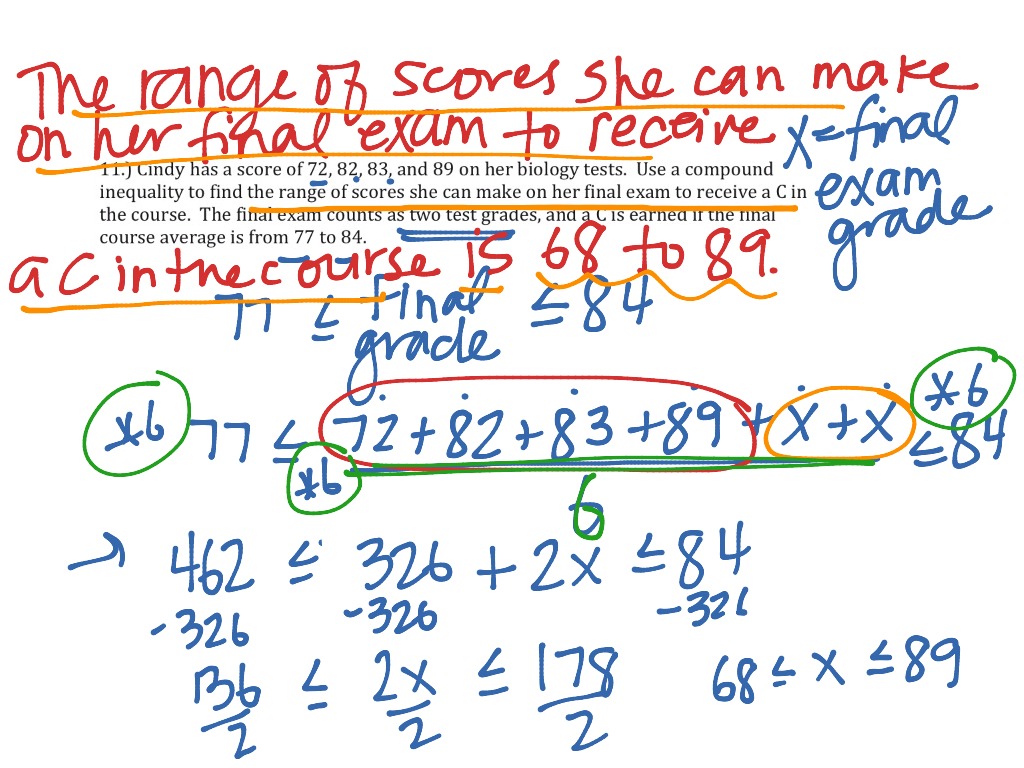 The range of scores she can make
on her final exam to receive
x = final
exam
grade
11.) Cindy has a score of 72, 82, 83, and 89 on her biology tests. Use a compound
inequality to find the range of scores she can make on her final exam to receive a C in
the course. The final exam counts as two test grades, and a C is earned if the final
course average is from 77 to 84.
a C in the course is 68 to 89.
77 ≤ Final grade ≤ 84
*6 77 ≤ 72 + 82 + 83 + 89 + x + x ≤ 84 *6
*6
6
→ 462 ≤ 326 + 2x ≤ 84
-326 -326 -326
136 ≤ 2x ≤ 178
2 2 2
68 ≤ x ≤ 89